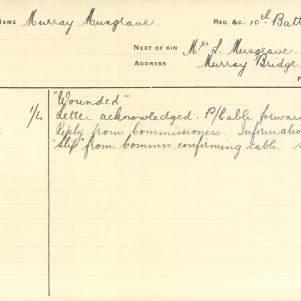 NAME Murray Musgrave. REG &C. 10th Batt
NEXT OF KIN Mrs L. Musgrave.
ADDRESS Murray Bridge,
"Wounded"
Letter acknowledged. P/Cable forward
Reply from Commissioners. Informatio
"Slip" from Comms confirming cable. s